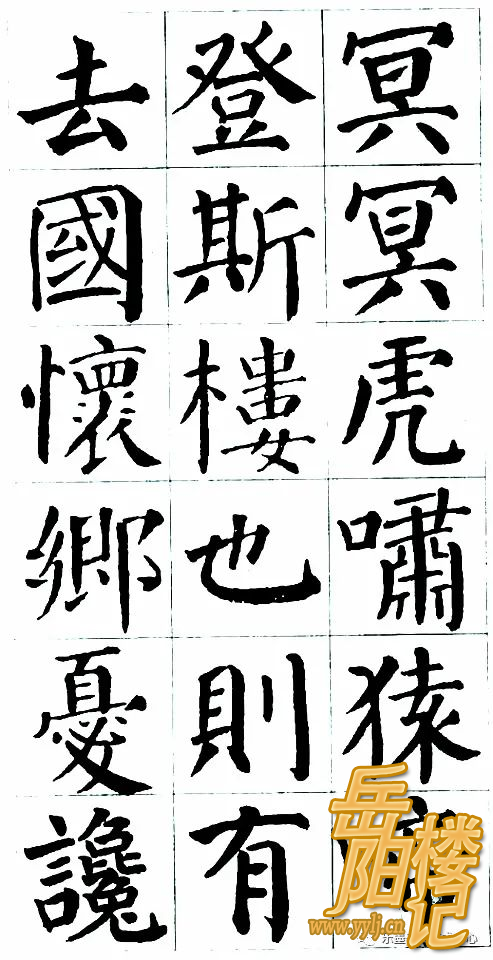 冥冥虎嘯猿
登斯樓也則有
去國懷鄉憂讒
岳陽楼记
www.yylj.cn